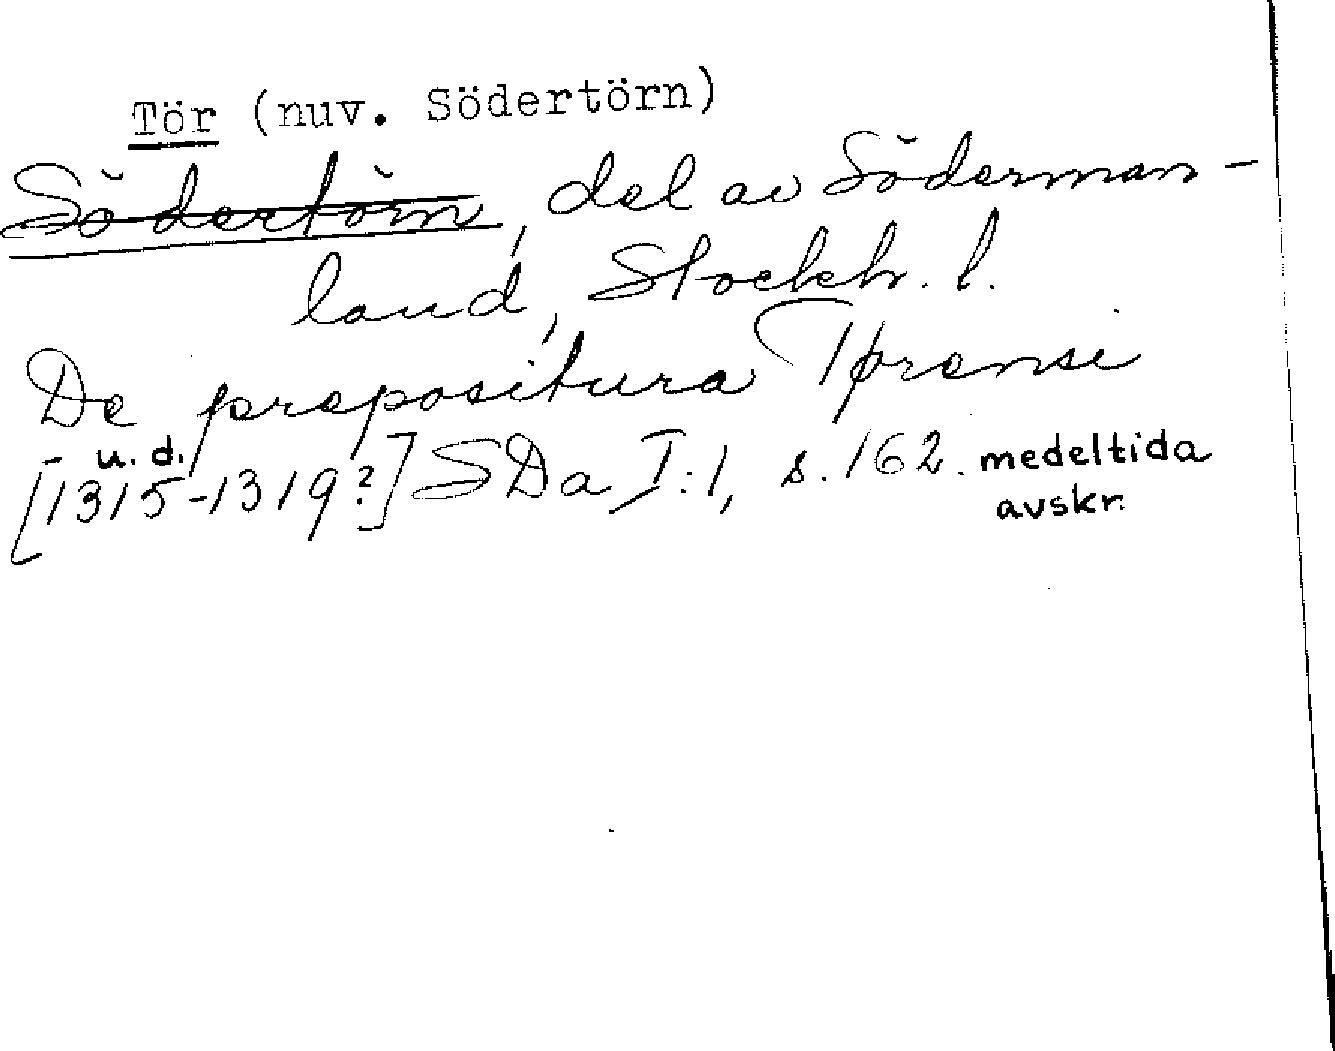 Tör (nuv. Södertörn)
Södertörn, del av Söderman-
land, Stockh. l.
De prepositura Tørensi
u. d.
[1315-1319?] SDa I:1, s. 162. medeltida
avskr.